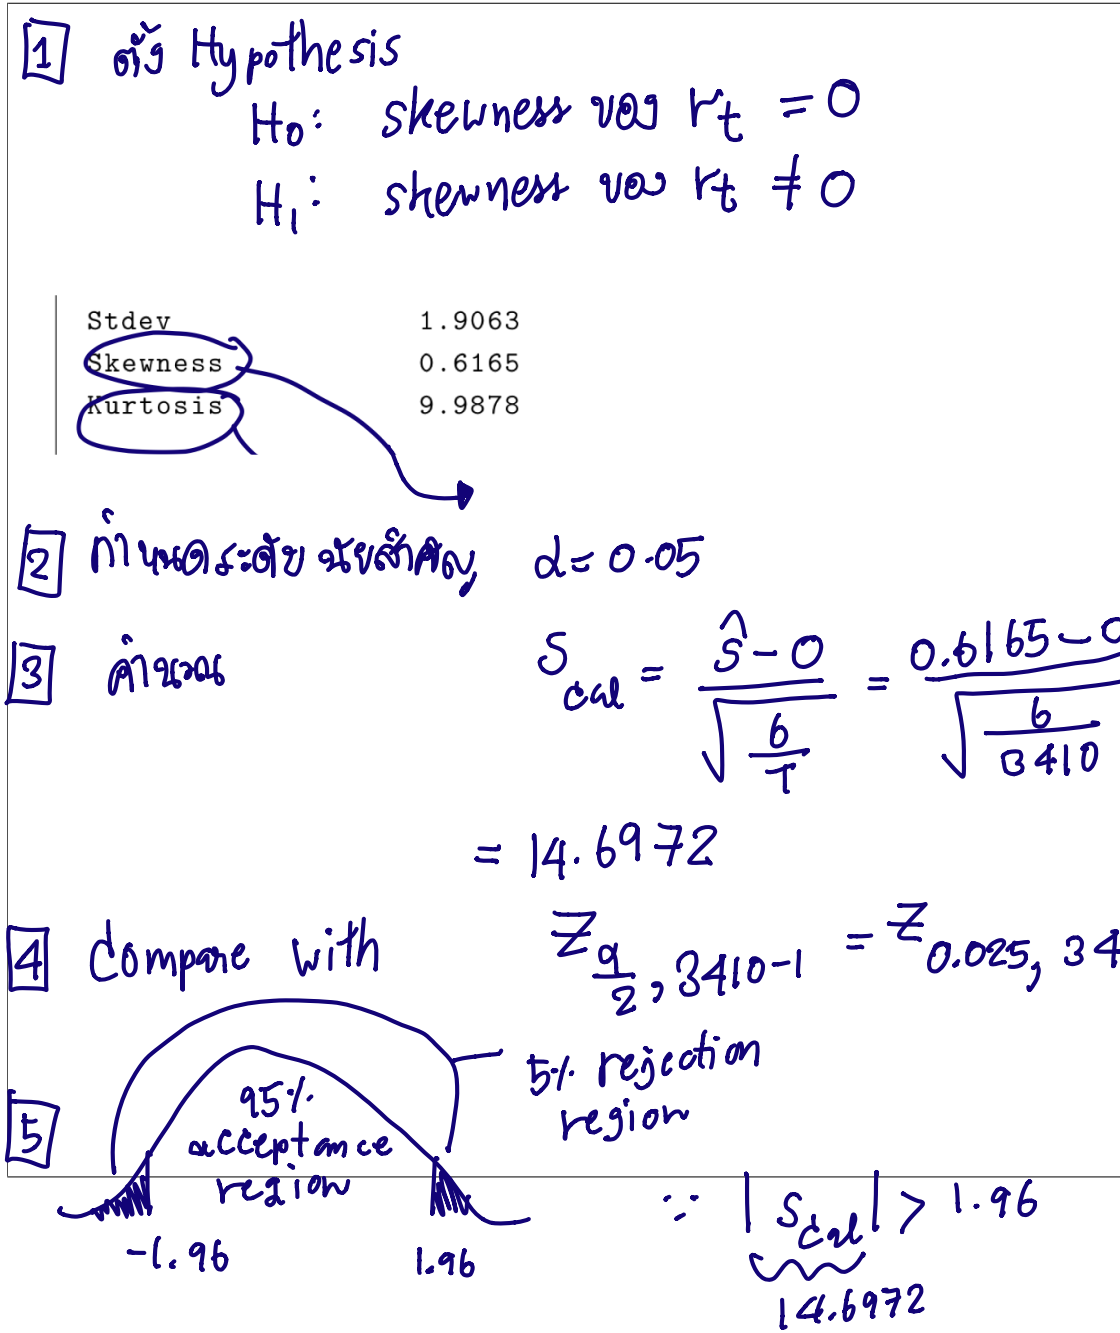 1 ตั้ง Hypothesis
H₀: skewness ของ r_t = 0
H₁: skewness ของ r_t ≠ 0
Stdev 1.9063
Skewness 0.6165
Kurtosis 9.9878
2 กำหนดระดับนัยสำคัญ α = 0.05
3 คำนวณ S_cal = (ŝ - 0) / √(6/T) = (0.6165 - 0) / √(6/3410)
= 14.6972
4 Compare with Z_{α/2, 3410-1} = Z_{0.025, 34
5% rejection region
5 95% acceptance region
-1.96 1.96
∵ |S_cal| > 1.96
14.6972